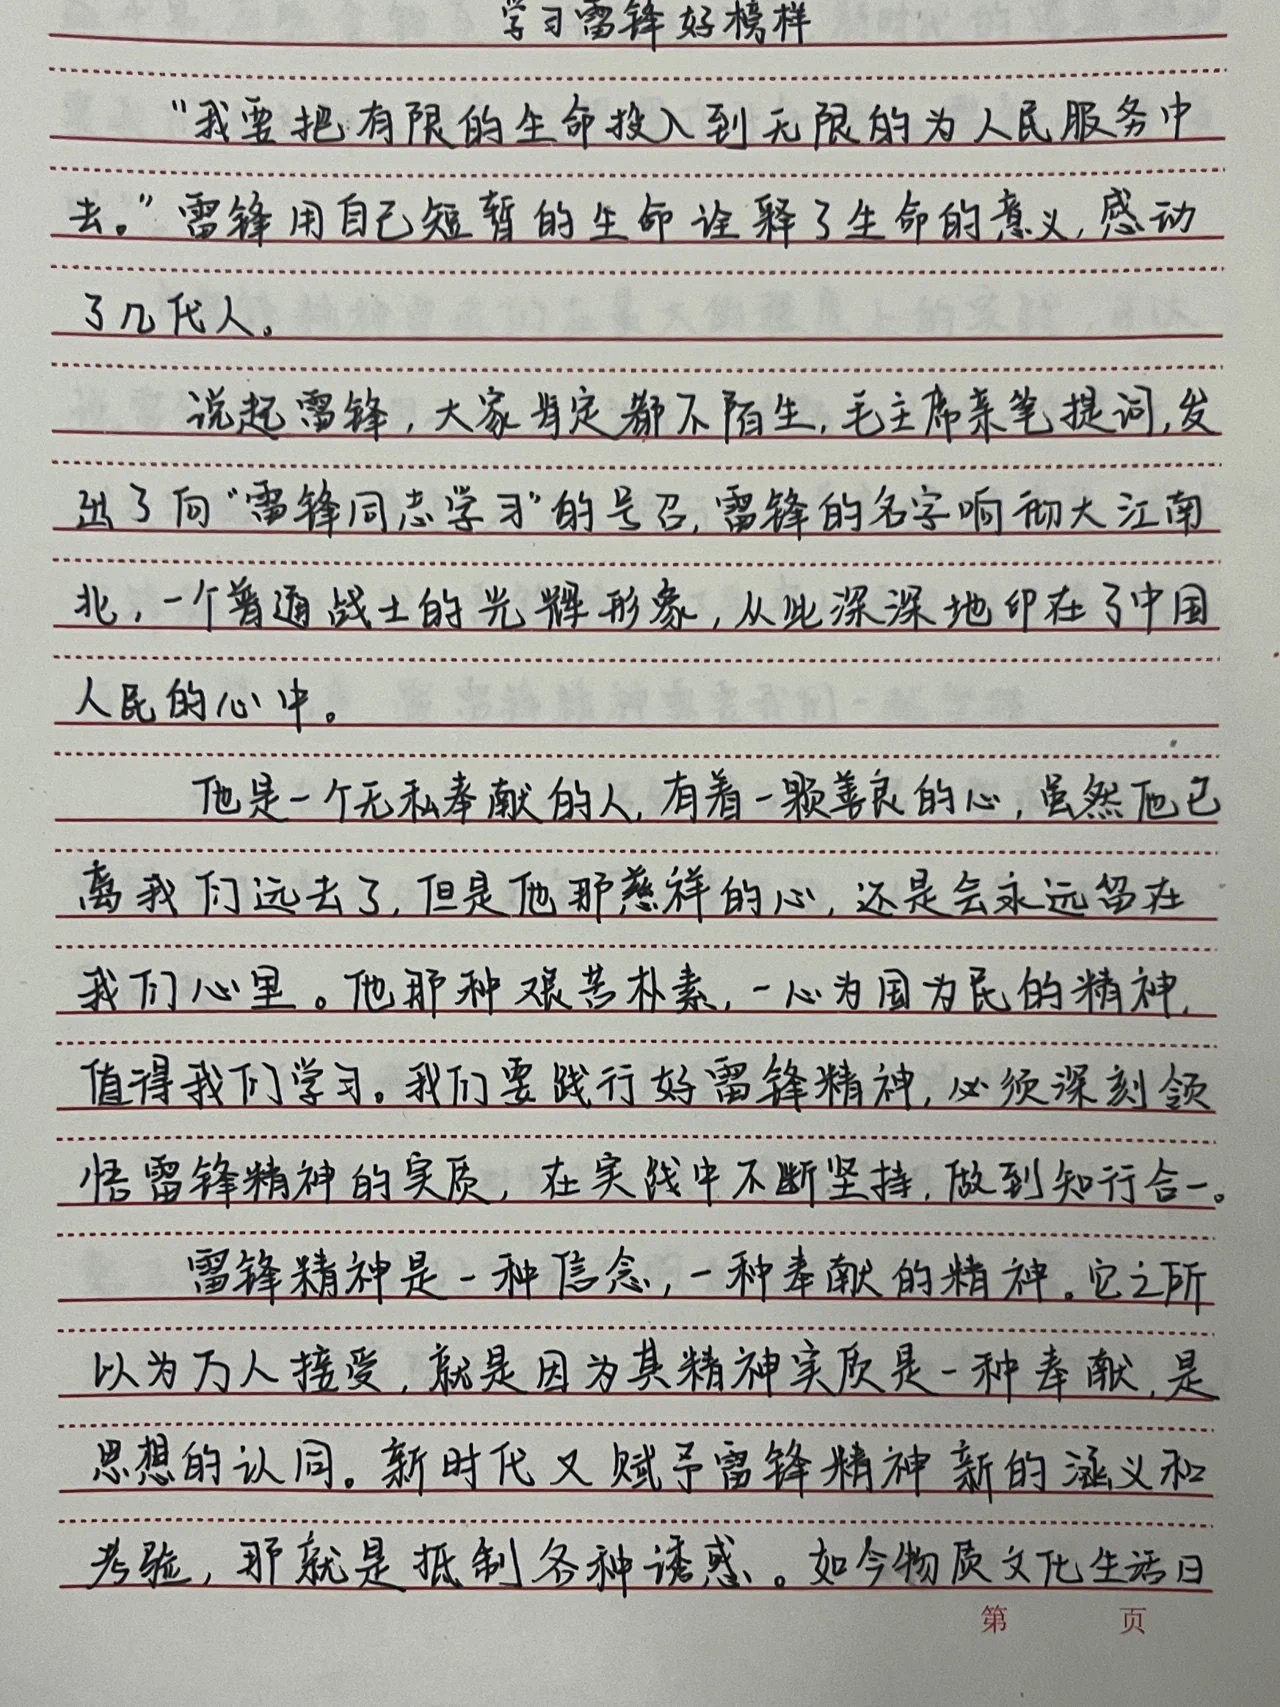 学习雷锋好榜样
“我要把有限的生命投入到无限的为人民服务中
去。”雷锋用自己短暂的生命诠释了生命的意义,感动
了几代人。
说起雷锋,大家肯定都不陌生,毛主席亲笔提词,发
出了向“雷锋同志学习”的号召,雷锋的名字响彻大江南
北,一个普通战士的光辉形象,从此深深地印在了中国
人民的心中。
他是一个无私奉献的人,有着一颗善良的心,虽然他已
离我们远去了,但是他那慈祥的心,还是会永远留在
我们心里。他那种艰苦朴素,一心为国为民的精神,
值得我们学习。我们要践行好雷锋精神,必须深刻领
悟雷锋精神的实质,在实践中不断坚持,做到知行合一。
雷锋精神是一种信念,一种奉献的精神。它之所
以为万人接受,就是因为其精神实质是一种奉献,是
思想的认同。新时代又赋予雷锋精神新的涵义和
考验,那就是抵制各种诱惑。如今物质文化生活日
第 页